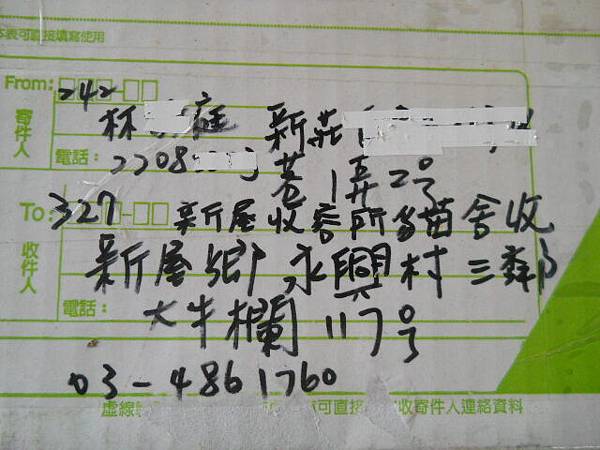 本表可直接填寫使用
From: 242
寄件人
林 庭 新莊
電話: 2208
巷1弄2号
To: 327 新屋收容所貓舍收
收件人
新屋鄉永興村三鄰
電話: 大牛欄117号
03-4861760
虛線 可直接 收寄件人連絡資料